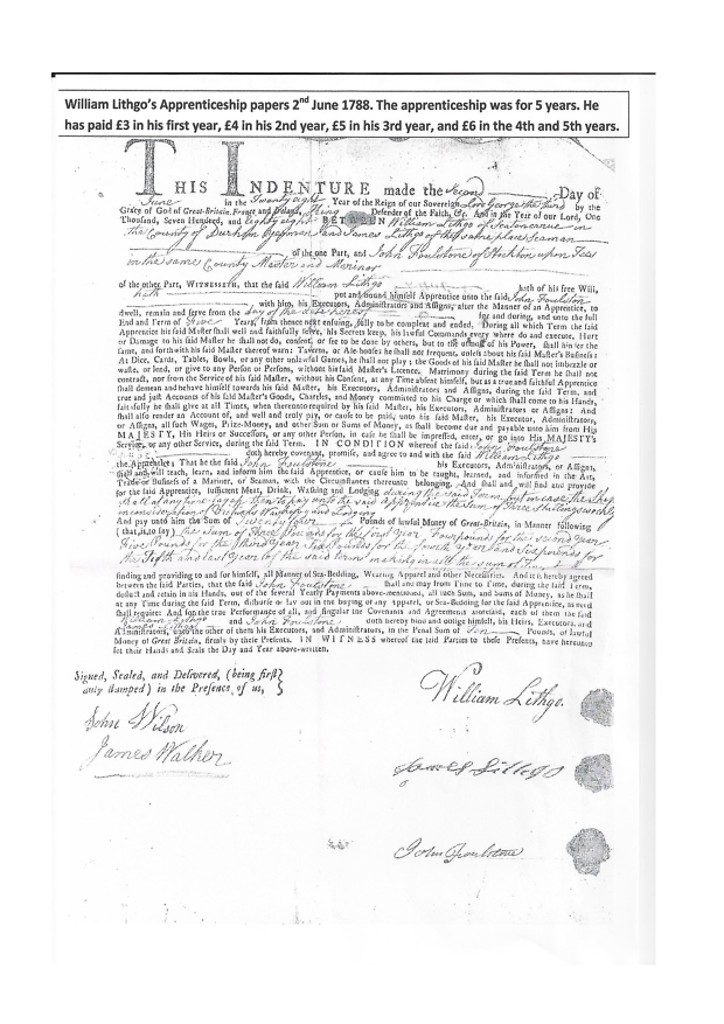 William Lithgo's Apprenticeship papers 2nd June 1788. The apprenticeship was for 5 years. He
has paid £3 in his first year, £4 in his 2nd year, £5 in his 3rd year, and £6 in the 4th and 5th years.
THIS INDENTURE made the Second Day of
June in the Twenty eight Year of the Reign of our Sovereign Lord George the third by the
Grace of God of Great-Britain, France and Ireland, King Defender of the Faith, &c. And in the Year of our Lord, One
Thousand, Seven Hundred, and eighty eight BETWEEN William Lithgo of Seaton carue in
the County of Durham and James Lithgo of the same place Seaman
of the one Part, and John Foulstone of Stockton upon Tees
in the same County Master and Marinor
of the other Part, WITNESSETH, that the said William Lithgo hath of his free Will,
hath put and bound himself Apprentice unto the said John Foulston
with him, his Executors, Administrators and Assigns, after the Manner of an Apprentice, to
dwell, remain and serve from the day of the date hereof for and during, and unto the full
End and Term of Five Years, from thence next ensuing, fully to be compleat and ended, During all which Term the said
Apprentice his said Master shall well and faithfully serve, his Secrets keep, his lawful Commands every where do and execute, Hurt
or Damage to his said Master he shall not do, consent, or see to be done by others, but to the utmost of his Power, shall hinder the
same, and forthwith his said Master thereof warn: Taverns, or Ale-houses he shall not frequent, unless about his said Master's Business:
At Dice, Cards, Tables, Bowls, or any other unlawful Games, he shall not play; the Goods of his said Master he shall not imbezzle or
waste, or lend, or give to any Person or Persons, without his said Master's Licence. Matrimony during the said Term he shall not
contract, nor from the Service of his said Master, without his Consent, at any Time absent himself, but as a true and faithful Apprentice
shall demean and behave himself towards his said Master, his Executors, Administrators and Assigns, during the said Term, and
true and just Accounts of his said Master's Goods, Chateles, and Money committed to his Charge or which shall come to his Hands,
faithfully he shall give at all Times, when thereunto required by his said Master, his Executors, Administrators or Assigns: And
shall also render an Account of, and well and truly pay, or cause to be paid, unto his said Master, his Executor, Administrators
or Assigns, all such Wages, Prize-Money, and other Sum or Sums of Money, as shall become due and payable unto him from HIS
MAJESTY, His Heirs or Successors, or any other Person, in case he shall be impressed, enter, or go into HIS MAJESTY's
Service, or any other Service, during the said Term. IN CONDITION whereof the said John Foulstone
doth hereby covenant, promise, and agree to and with the said William Lithgo
the Apprentice; That he the said John Foulstone his Executors, Administrators, or Assigns,
shall and will teach, learn, and inform him the said Apprentice, or cause him to be taught, learned, and informed in the Art,
Trade or Business of a Mariner, or Seaman, with the Circumstances thereunto belonging. And shall and will find and provide
for the said Apprentice, sufficient Meat, Drink, Washing and Lodging during the said Term but in case the Ship
then to pay unto the said Apprentice the Sum of Three shillings weekly
in consideration of Washing and Lodging
And pay unto him the Sum of Twenty four Pounds of lawful Money of Great-Britain, in Manner following
(that, is, to say) the Sum of Three Pounds for the first Year Four pounds for the second Year
Five Pounds for the third Year Six Pounds for the fourth Year and Six pounds for
the Fifth and last Year of the said term making in all the sum of
finding and providing to and for himself, all Manner of Sea-Bedding, Wearing Apparel and other Necessaries. And it is hereby agreed
between the said Parties, that the said John Foulstone shall and may from Time to Time, during the said Term,
deduct and retain in his Hands, out of the several Yearly Payments above-mentioned, all such Sum, and Sums of Money, as he shall
at any Time during the said Term, disburse or lay out in the buying of any Apparel, or Sea-Bedding for the said Apprentice, as need
shall require: And for the true Performance of all, and singular the Covenants and Agreements aforesaid, each of them the said
William Lithgo James Lithgo and John Foulstone doth hereby bind and oblige himself, his Heirs, Executors, and
Administrators, unto the other of them his Executors, and Administrators, in the Penal Sum of Ten Pounds, of lawful
Money of Great Britain, firmly by these Presents. IN WITNESS whereof the said Parties to these Presents, have hereunto
set their Hands and Seals the Day and Year above-written.
Signed, Sealed, and Delivered, (being first
duly stamped) in the Presence of us,
John Wilson
James Walker
William Lithgo.
James Lithgo
John Foulstone